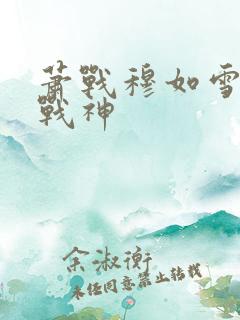 萧戰穆如雪
戰神
余淑衡
未经同意禁止转载